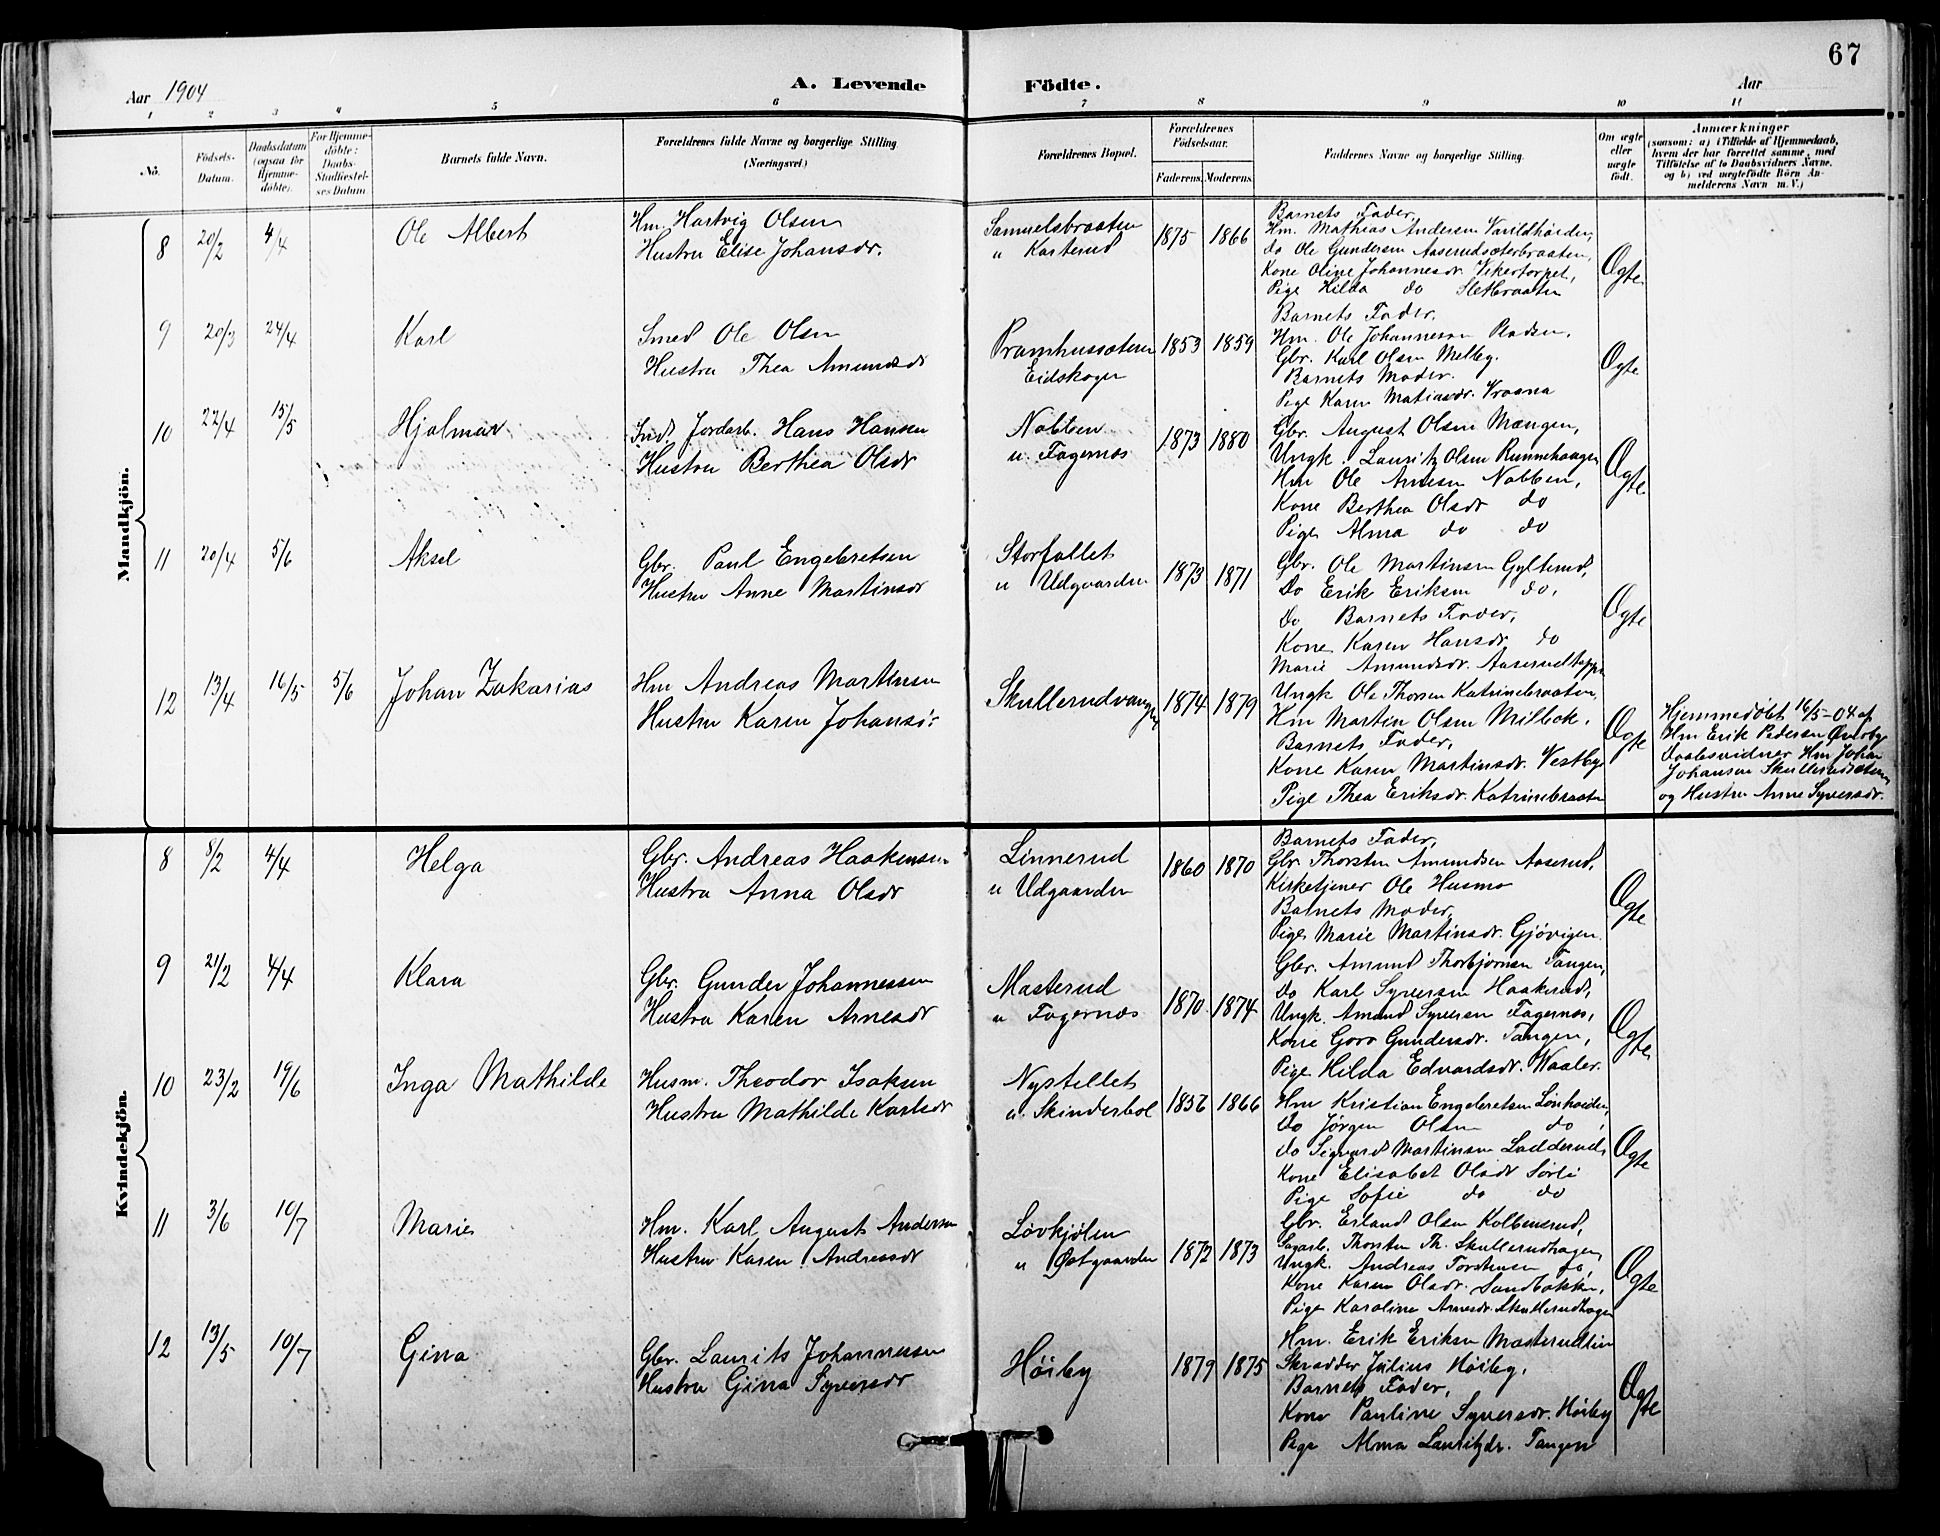 67
Aar 1904
A. Levende
Födte.
Aar
1 2 3 4 5 6 7 8 9 10 11
No.
Födsels-Datum.
Daabsdatum (ogsaa for Hjemme-döbte).
For Hjemme-döbte: Daabs-Stadfæstel-ses Datum
Barnets fulde Navn.
Forældrenes fulde Navne og borgerlige Stilling (Næringsvei)
Forældrenes Bopæl.
Forældrenes Födselsaar.
Faderens. Moderens.
Faddernes Navne og borgerlige Stilling.
Om ægte eller uægte födt.
Anmærkninger
(saasom: a) i Tilfælde af Hjemmedaab, hvem der har forrettet samme, med Tilföielse af to Daabsvidners Navne, og b) ved uægtefödte Börn An-melderens Navn m. V.)
Mandkjön.
8 20/2 4/4 Ole Albert
Hm. Hartvig Olsen
Hustru Elise Johansdr.
Samuelsbraaten
u Kasterud
1875 1866
Barnets Fader,
Hm. Mathias Andersen Varildhøiden,
do Ole Gundersen Aaserudsæterbraaten,
Kone Oline Johannesdr. Vikertorpet,
Pige Hilda do Sletbraaten
Ægte
9 20/3 24/4 Karl
Smed Ole Olsen
Hustru Thea Amundsdr
Pramhussæteren
Eidskogen
1853 1859
Barnets Fader,
Hm. Ole Johannesen Pladsen,
Gbr. Karl Olsen Melby.
Barnets Moder.
Pige Karen Matiasdr. Vraana
Ægte
10 22/4 15/5 Hjalmar
Ind. Jordarb. Hans Hansen
Hustru Berthea Olsdr
Nabben
u. Fagernæs
1873 1880
Gbr. August Olsen Mængen,
Ungk. Lauritz Olsen Runnehaugen
Hm Ole Arnesen Nabben,
Kone Berthea Olsdr do
Pige Alma do do
Ægte
11 20/4 5/6 Aksel
Gbr. Paul Engebretsen
Hustru Anne Martinsdr
Storfallet
u Udgaarden
1873 1871
Gbr. Ole Martinsen Gylterud,
Do Erik Eriksen do,
Do Barnets Fader,
Kone Karen Hansdr. do
Marie Amundsdr. Aaserud
Ægte
12 13/4 16/5 5/6 Johan Zakarias
Hm Andreas Martinsen
Hustru Karen Johansdr
Skullerudvangen
1874 1879
Ungk Ole Thorsen Katrinebraaten,
Hm Martin Olsen Milbak,
Barnets Fader,
Kone Karen Martinsdr. Vestby
Pige Thea Eriksdr. Katrinebraaten
Ægte
Hjemmedøbt 16/5-04 af
Hm Erik Pedersen Øverby
Daabsvidner Hm Johan
Johansen Skullerudsæteren
og Hustru Anne Syversdr.
Kvindekjön.
8 8/2 4/4 Helga
Gbr. Andreas Haakensen
Hustru Anna Olsdr
Linnerud
u Udgaarden
1860 1870
Barnets Fader,
Gbr. Thorsten Amundsen Aaserud,
Kirketjener Ole Husmo
Barnets Moder,
Pige Marie Martinsdr. Gjøvigen.
Ægte
9 21/2 4/4 Klara
Gbr. Gunder Johannessen
Hustru Karen Arnesdr
Masterud
u Fagernæs
1870 1874
Gbr. Amund Thorbjørnsen Tangen,
Do Karl Syversen Haakerud,
Ungk. Amund Syversen Fagernæs,
Kone Goro Gundersdr. Tangen,
Pige Hilda Edvardsdr. Waaler.
Ægte
10 23/2 19/6 Inga Mathilde
Husm. Theodor Isaksen
Hustru Mathilde Karlsdr
Nystellet
u. Skinderbøl
1856 1866
Hm Kristian Engebretsen Lønhøiden,
Do Jørgen Olsen do,
do Sigvard Martinsen Ladderud,
Kone Elisabet Olsdr Sørli
Pige Sofie do do
Ægte
11 3/6 10/7 Marie
Hm. Karl August Andersen
Hustru Karen Andreasdr
Løvkjølen
u Østgaarden
1872 1873
Gbr. Erland Olsen Kolbenerud,
Sagarb. Thorsten Th. Skullerudhagen,
Ungk. Andreas Torstensen do,
Kone Karen Olsdr. Sandbakken,
Pige Karoline Arnesdr. Skullerudhagen
Ægte
12 13/5 10/7 Gina
Gbr. Laurits Johannessen
Hustru Gina Syversdr
Høiby
1879 1875
Hm. Erik Eriksen Masterud
Skrædder Julius Høiby,
Barnets Fader,
Kone Pauline Syversdr. Høiby
Pige Alma Lauritzdr. Tangen
Ægte